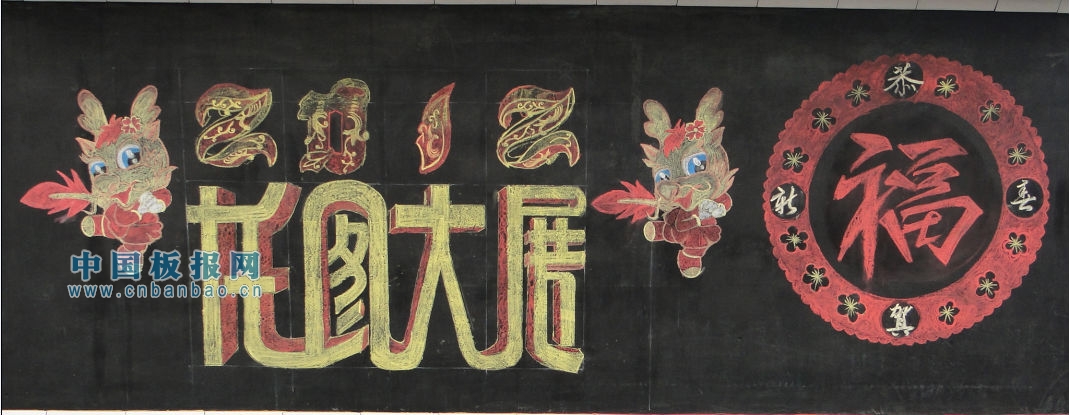 2012
龙图大展
恭賀新春
福
中国板报网
www.cnbanbao.cn